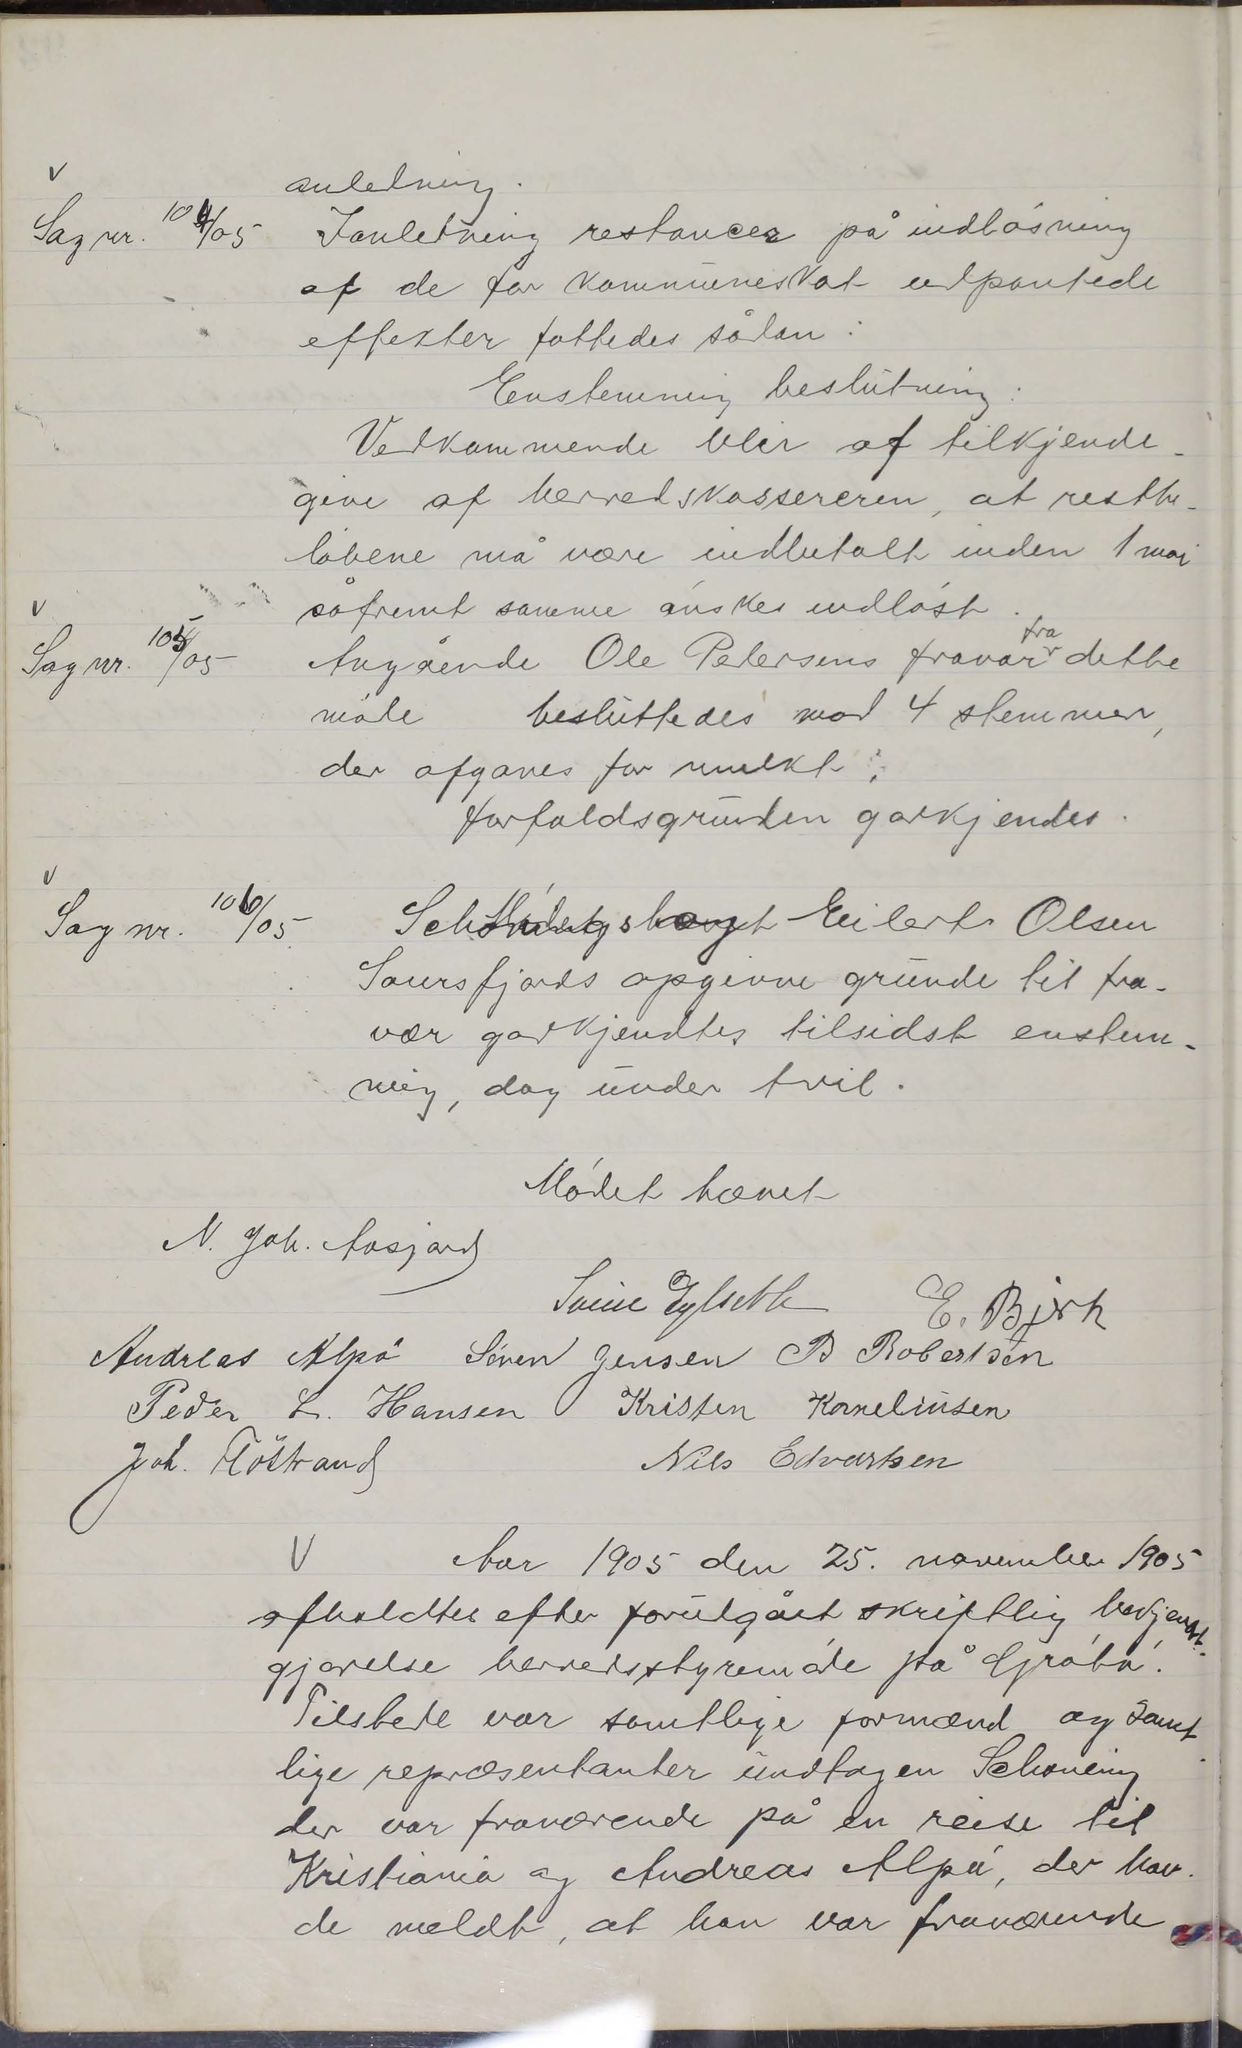 anledning.
Sag nr. 104/05 I anledning restancer på indløsning
af de for kommuneskat udpantede
effekter fattedes sådan:
Enstemmig beslutning:
Vedkommende blir at tilkjende-
give af herredskassereren, at restbe-
løbene må være indbetalt inden 1 mai
såfremt samme ønskes indløst.
Sag nr. 105/05 Angående Ole Petersens fravær fra dette
møde besluttedes mod 4 stemmer,
der afgaves for mulkt:
forfaldsgrunden godkjendes.
Sag nr. 106/05 Eilert Olsen
Saursfjords opgivne grunde til fra-
vær godkjendtes tilsidst enstem-
mig, dog under tvil.
Mødet hævet
N. Joh. Aasjord
E. Bjørk
Andreas Alpø Søren Jensen B Robertsen
Peder L. Hansen Kristen Korneliusen
Joh. Flöstrand Nils Edvartsen
V Aar 1905 den 25. november 1905
afholdtes efter forutgået skriftlig bekjendt-
gjørelse herredsstyremøde på Grøtø.
Tilstede var samtlige formænd og samt
lige repræsentanter undtagen Schøning
der var fraværende på en reise til
Kristiania og Andreas Alpø, der hav-
de meldt, at han var fraværende